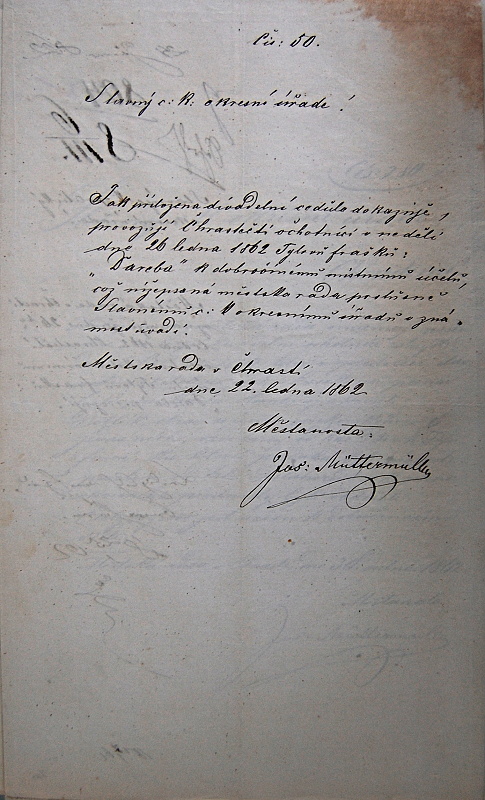 Čís: 50.
Slavný c: k: okresní úřade!
Jak přiložena divadelní cedule dokazuje,
provozují Chrastečtí ochotníci v neděli
dne 26 ledna 1862 Tylovu frašku:
„Ďareba" k dobročinnemu místnímu účelu,
což níjepsaná městska rada prostřeně
Slavnému c: k okresnímu úřadu v zná-
most uvádí.
Městska rada v Chrasti
dne 22. ledna 1862
Městanosta:
Jos: Müttermüller